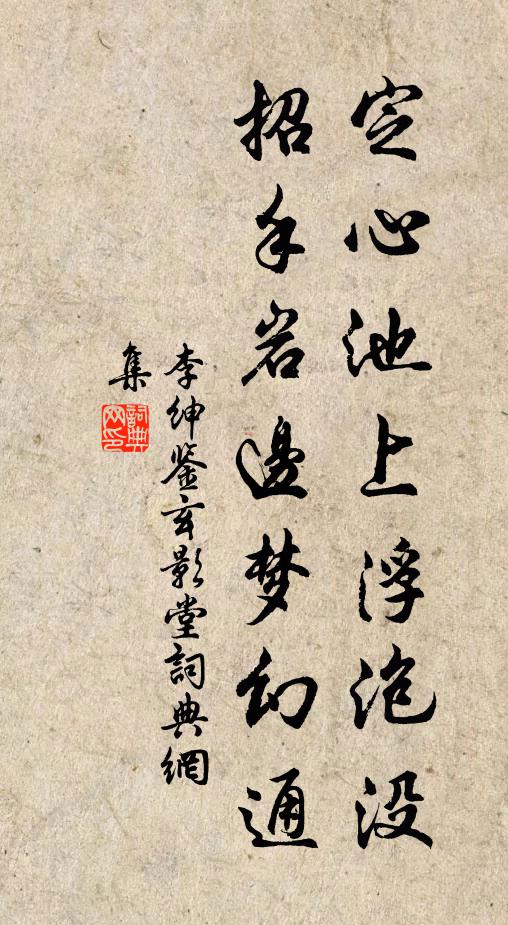 定心池上浮泡没
招手岩邊梦幻通
李绅鉴玄影堂詞典網
集
詞典網印